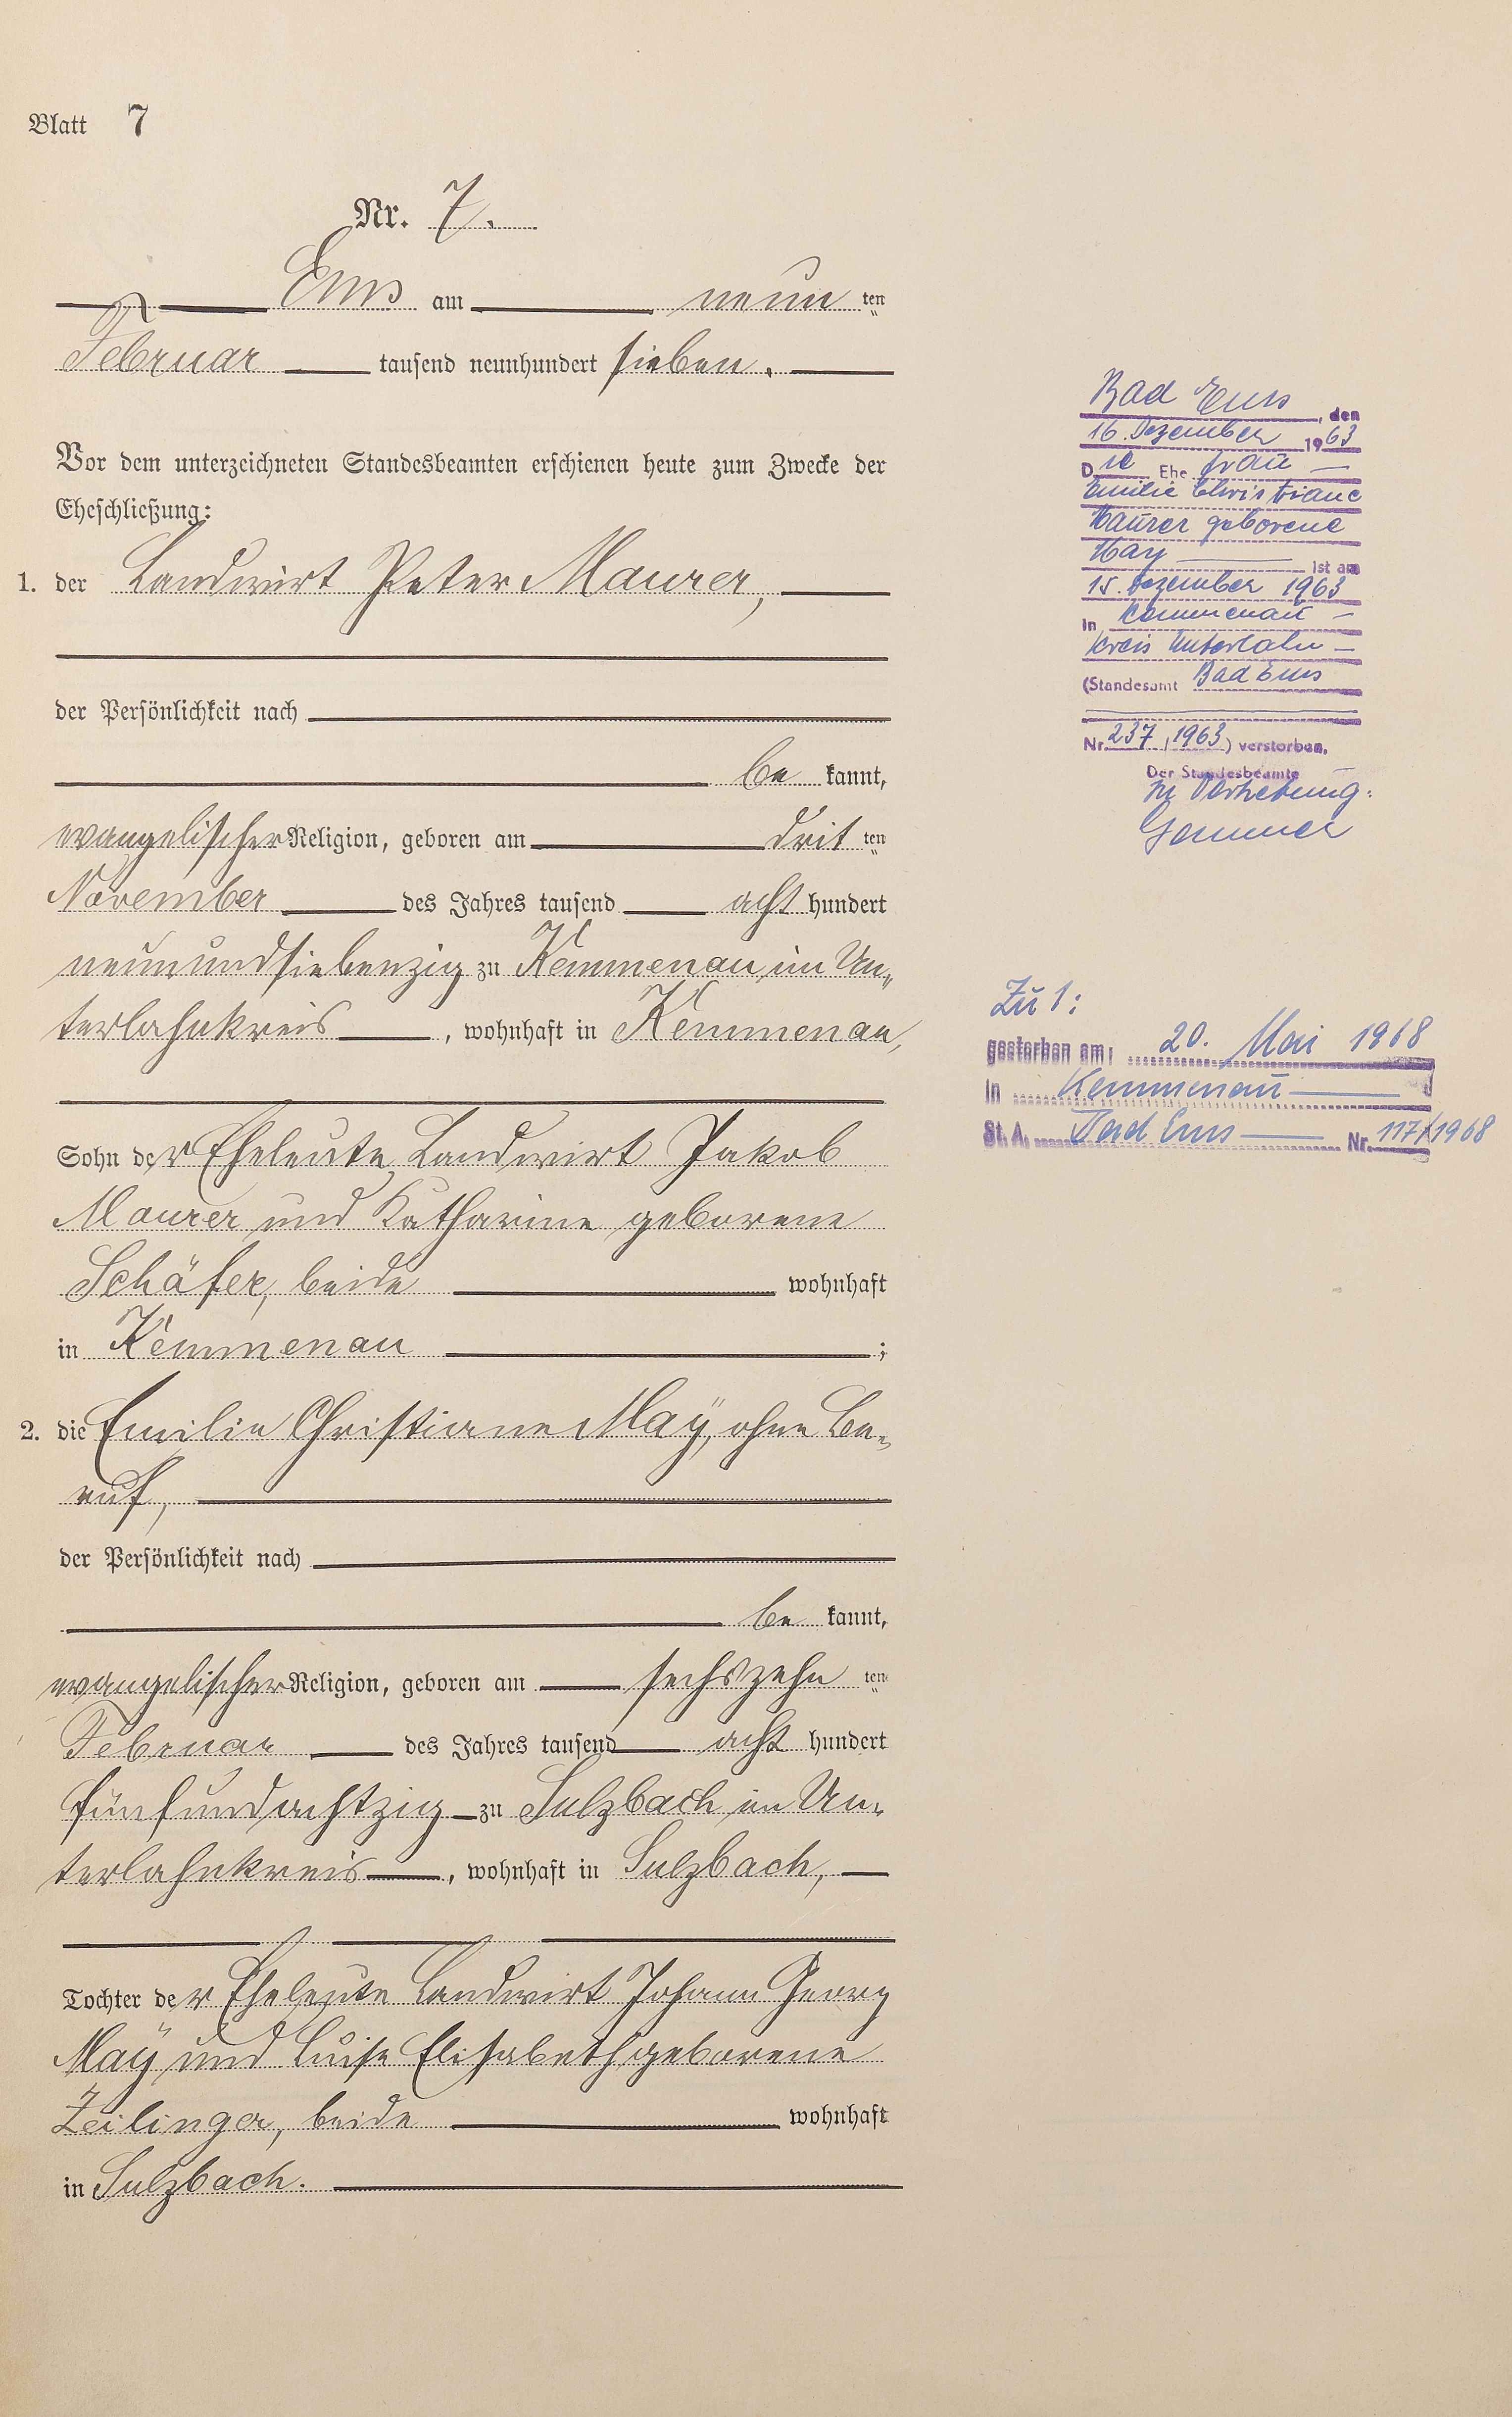 Blatt 7
Nr. 7.
Ems am neun ten
Februar tausend neunhundert sieben.
Vor dem unterzeichneten Standesbeamten erschienen heute zum Zwecke der
Eheschließung:
1. der Landwirt Peter Maurer,
der Persönlichkeit nach
be kannt,
evangelischer Religion, geboren am drit ten
November des Jahres tausend acht hundert
neunundsiebenzig zu Kemmenau im Un-
terlahnkreis, wohnhaft in Kemmenau,
Sohn der Eheleute Landwirt Jakob
Maurer und Katharine geborene
Schäfer, beide wohnhaft
in Kemmenau ;
2. die Emilie Christiane Maÿ, ohne Be-
ruf,
der Persönlichkeit nach
be kannt,
evangelischer Religion, geboren am sechszehn ten
Februar des Jahres tausend acht hundert
fünfundachtzig zu Sulzbach im Un-
terlahnkreis, wohnhaft in Sulzbach,
Tochter der Eheleute Landwirt Johann Georg
Maÿ und Luise Elisabeth geborene
Zeilinger, beide wohnhaft
in Sulzbach.
Bad Ems, den
16. Dezember 1963
Die Ehefrau
Emilie Christiane
Maurer geborene
May ist am
15. Dezember 1963
in Kemmenau
Kreis Unterlahn
(Standesamt Bad Ems
Nr. 237/1963) verstorben.
Der Standesbeamte
In Vertretung:
Zu 1:
gestorben am: 20. Mai 1968
in Kemmenau
St.A. Bad Ems Nr. 117/1968